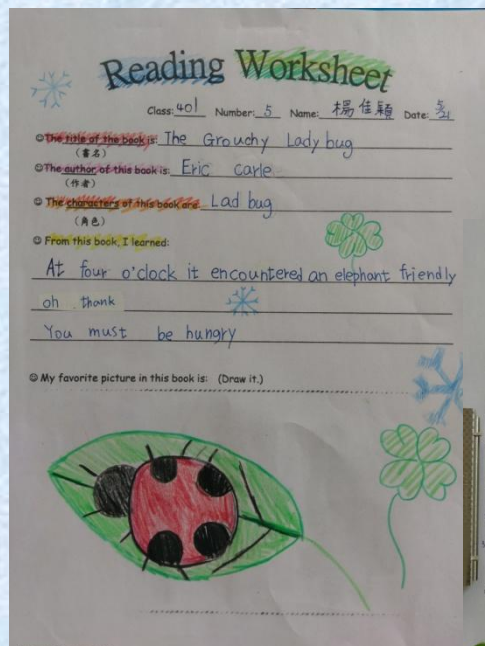 Reading Worksheet
Class: 401 Number: 5 Name: 楊佳穎 Date: 5/21
☺The title of the book is: The Grouchy Lady bug
(書名)
☺The author of this book is: Eric carle
(作者)
☺ The characters of this book are: Lad bug
(角色)
☺ From this book, I learned:
At four o'clock it encountered an elephant friendly
oh thank
You must be hungry
☺ My favorite picture in this book is: (Draw it.)